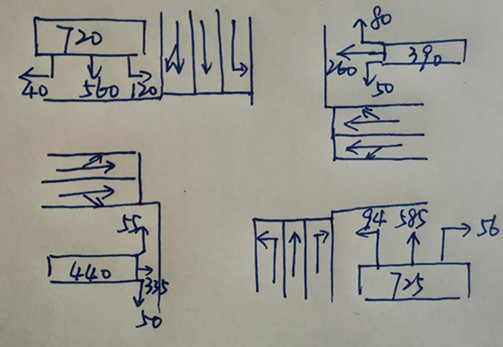 720
40 560 120
80
260 390
50
55
440 335
50
94 585 56
725